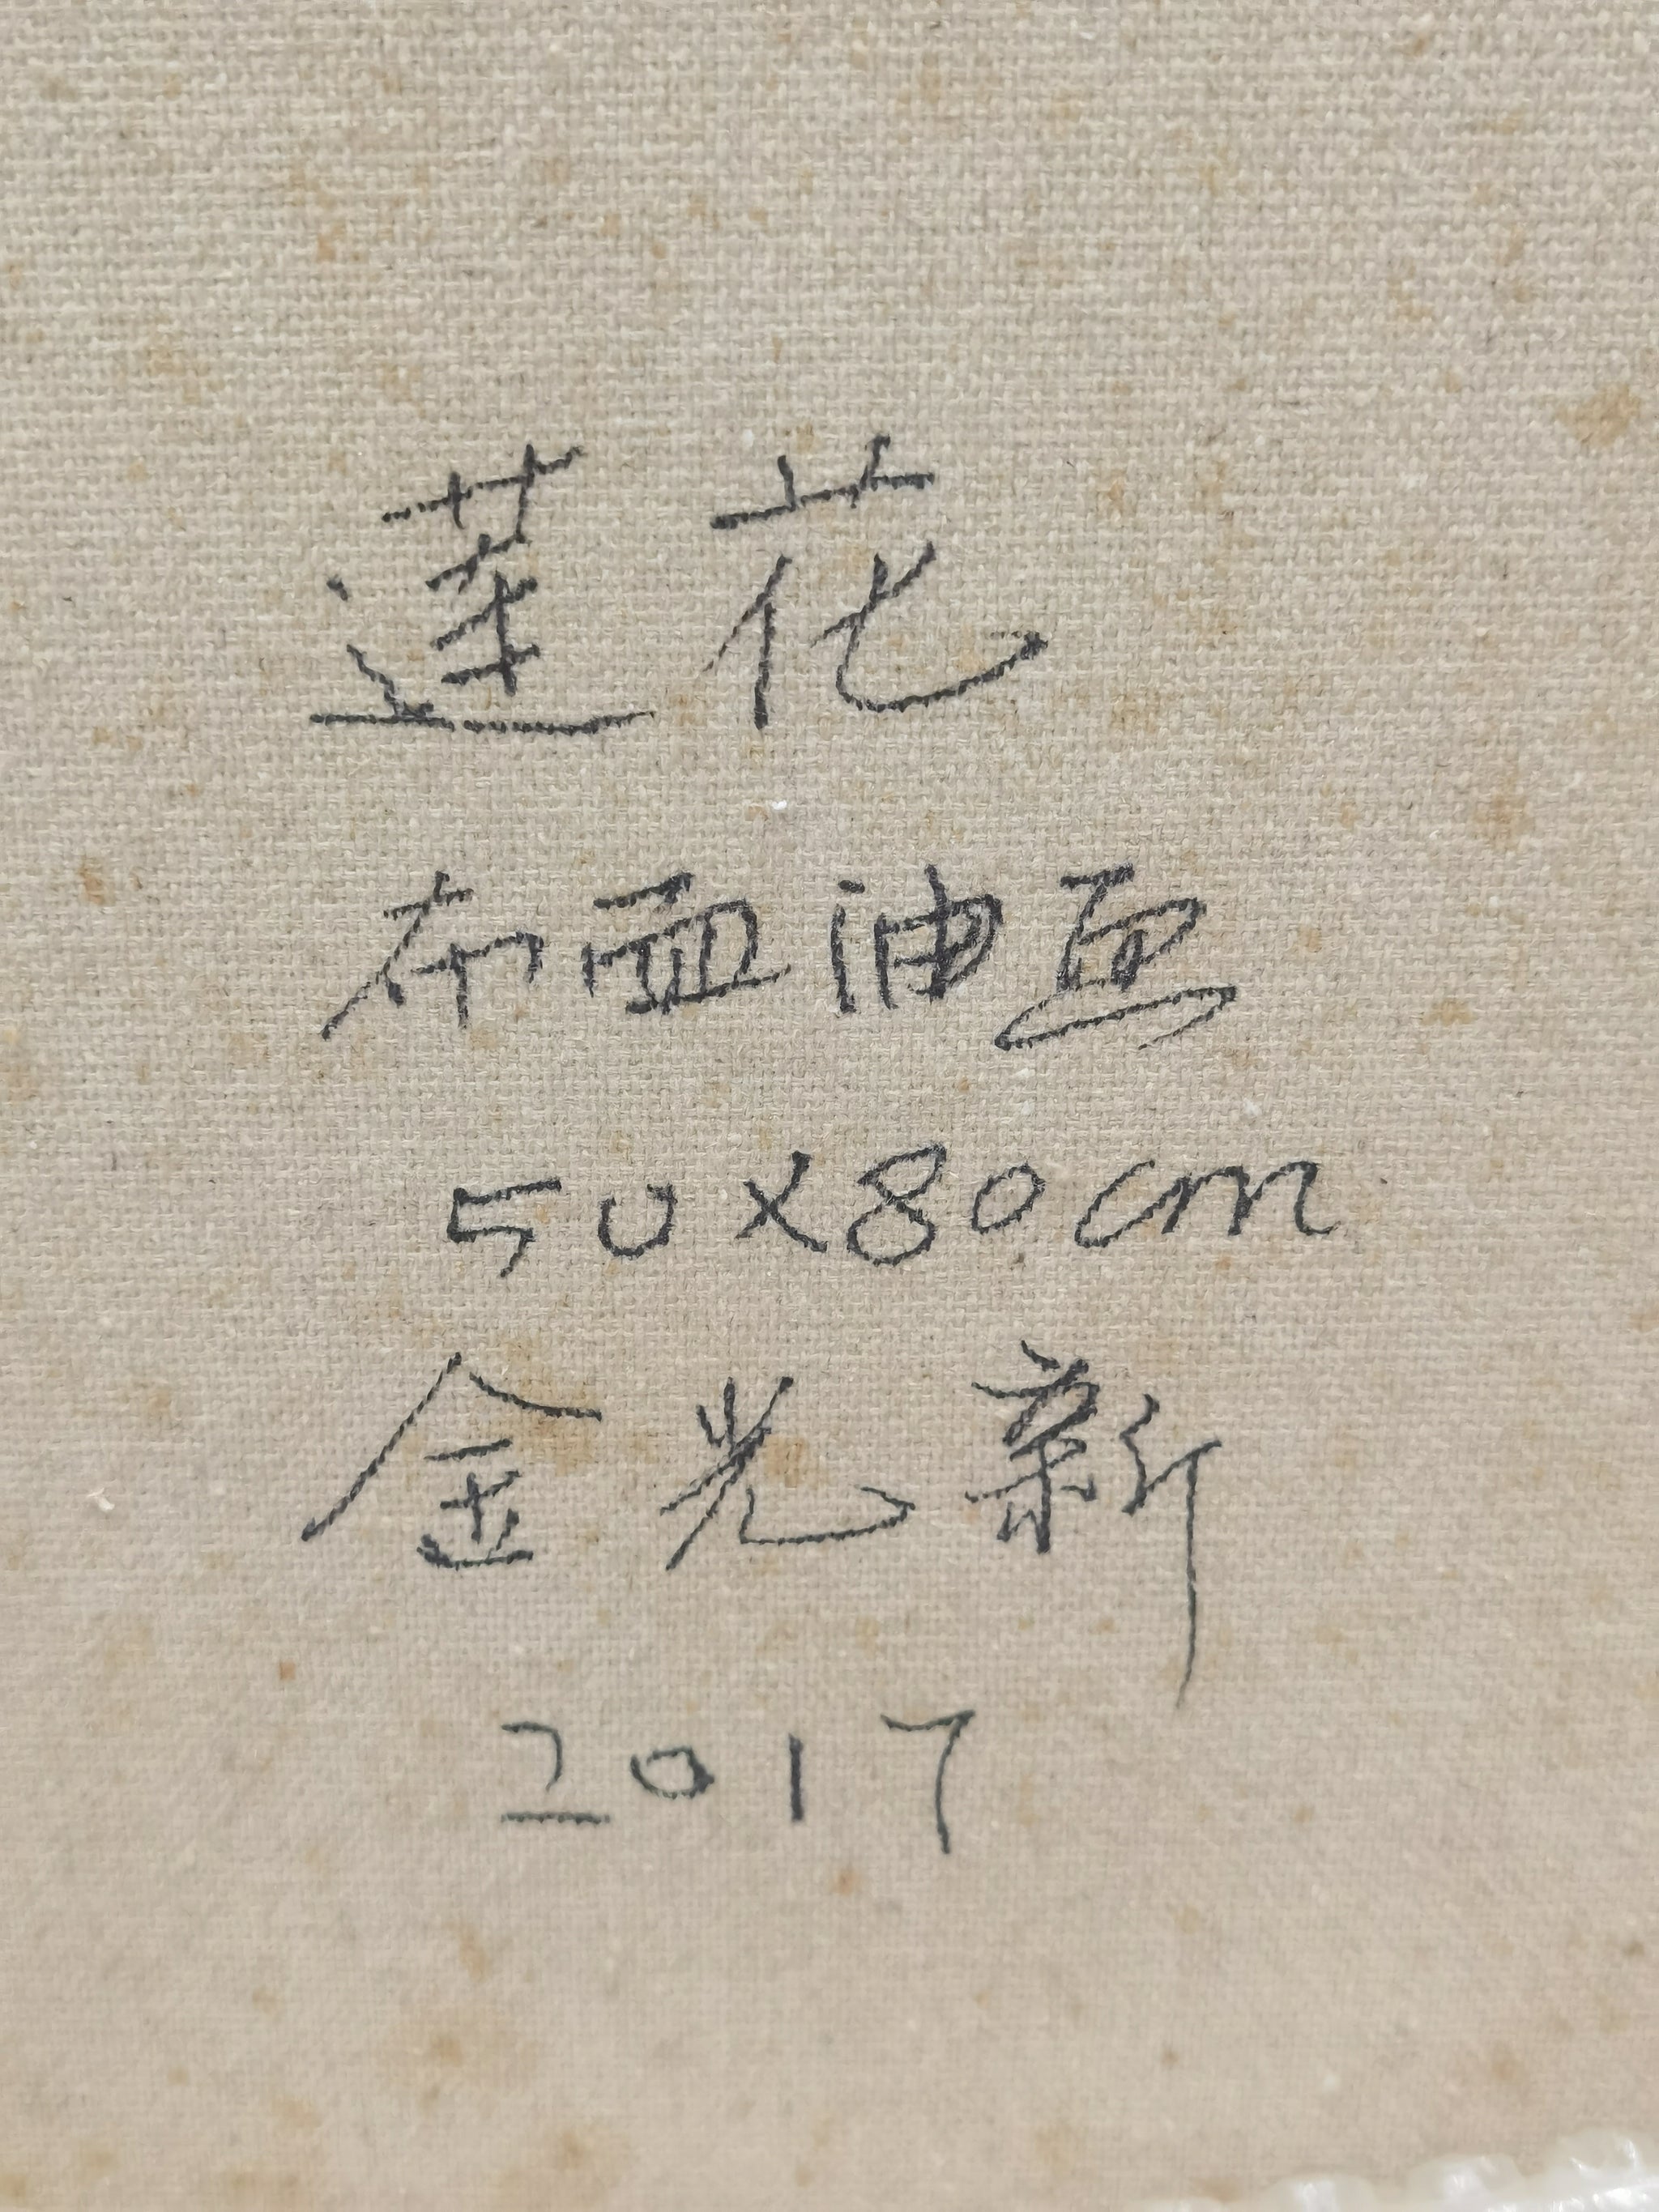 莲花
布面油画
50×80cm
金光新
2017